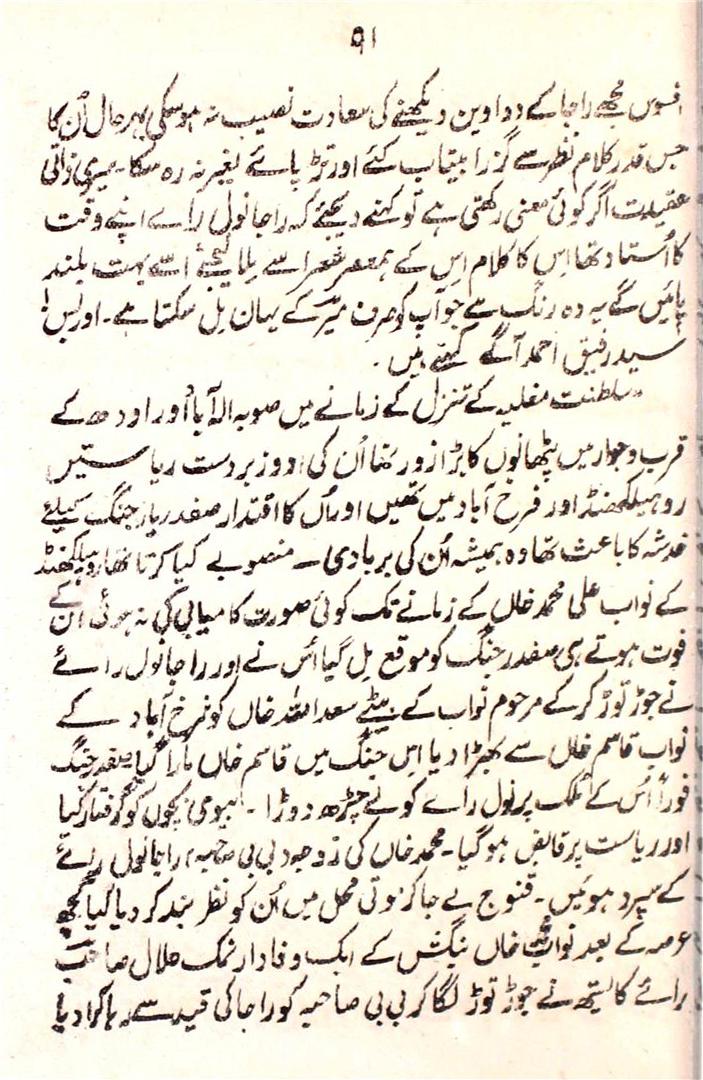 ۹۱
افسوس مجھے راجا کے دواوین دیکھنے کی سعادت نصیب نہ ہوسکی بہر حال اُن کا
جس قدر کلام نظر سے گزرا بیتاب کئے اور تڑپائے بغیر نہ رہ سکا۔ میری ذاتی
عقیدت اگر کوئی معنی رکھتی ہے تو کہنے دیجئے کہ راجا نول رائے اپنے وقت
کا اُستاد تھا اِس کا کلام اِس کے ہمعصر شعرا سے ملا لیجئے اسے بہت بلند
پائیں گے یہ وہ رنگ ہے جو آپ کو صرف میرؔ کے یہاں مل سکتا ہے۔ اور بس!
سید رفیق احمد آگے کہتے ہیں۔
"سلطنت مغلیہ کے تنزل کے زمانے میں صوبہ الہ آباد اور اودھ کے
قرب و جوار میں پٹھانوں کا بڑا زور تھا اُن کی دو زبردست ریاستیں
روہیلکھنڈ اور فرخ آباد میں تھیں اور اُن کا اقتدار صفدر یار جنگ کیلئے
خدشہ کا باعث تھا وہ ہمیشہ اُن کی بربادی کے منصوبے کیا کرتا تھا روہیلکھنڈ
کے نواب علی محمد خاں کے زمانے تک کوئی صورت کامیابی کی نہ ہوئی اُن کے
فوت ہوتے ہی صفدر جنگ کو موقع مل گیا اُس نے اور راجا نول رائے
نے جوڑ توڑ کر کے مرحوم نواب کے بیٹے سعد اللہ خاں کو فرخ آباد کے
نواب قاسم خاں سے بھڑا دیا اِس جنگ میں قاسم خاں مارا گیا صفدر جنگ
فوراً اُس کے ملک پر نول رائے کو لے چڑھ دوڑا۔ بیوی بچوں کو گرفتار کیا
اور ریاست پر قابض ہو گیا۔ محمد خاں کی زوجہ بی بی صاحبہ راجا نول رائے
کے سپرد ہوئیں۔ قنوج لے جا کر موتی محل میں اُن کو نظر بند کر دیا گیا کچھ
عرصہ کے بعد نواب محمد خاں بنگش کے ایک وفادار نمک حلال صاحب
رائے کایستھ نے جوڑ توڑ لگا کر بی بی صاحبہ کو راجا کی قید سے رہا کرا دیا